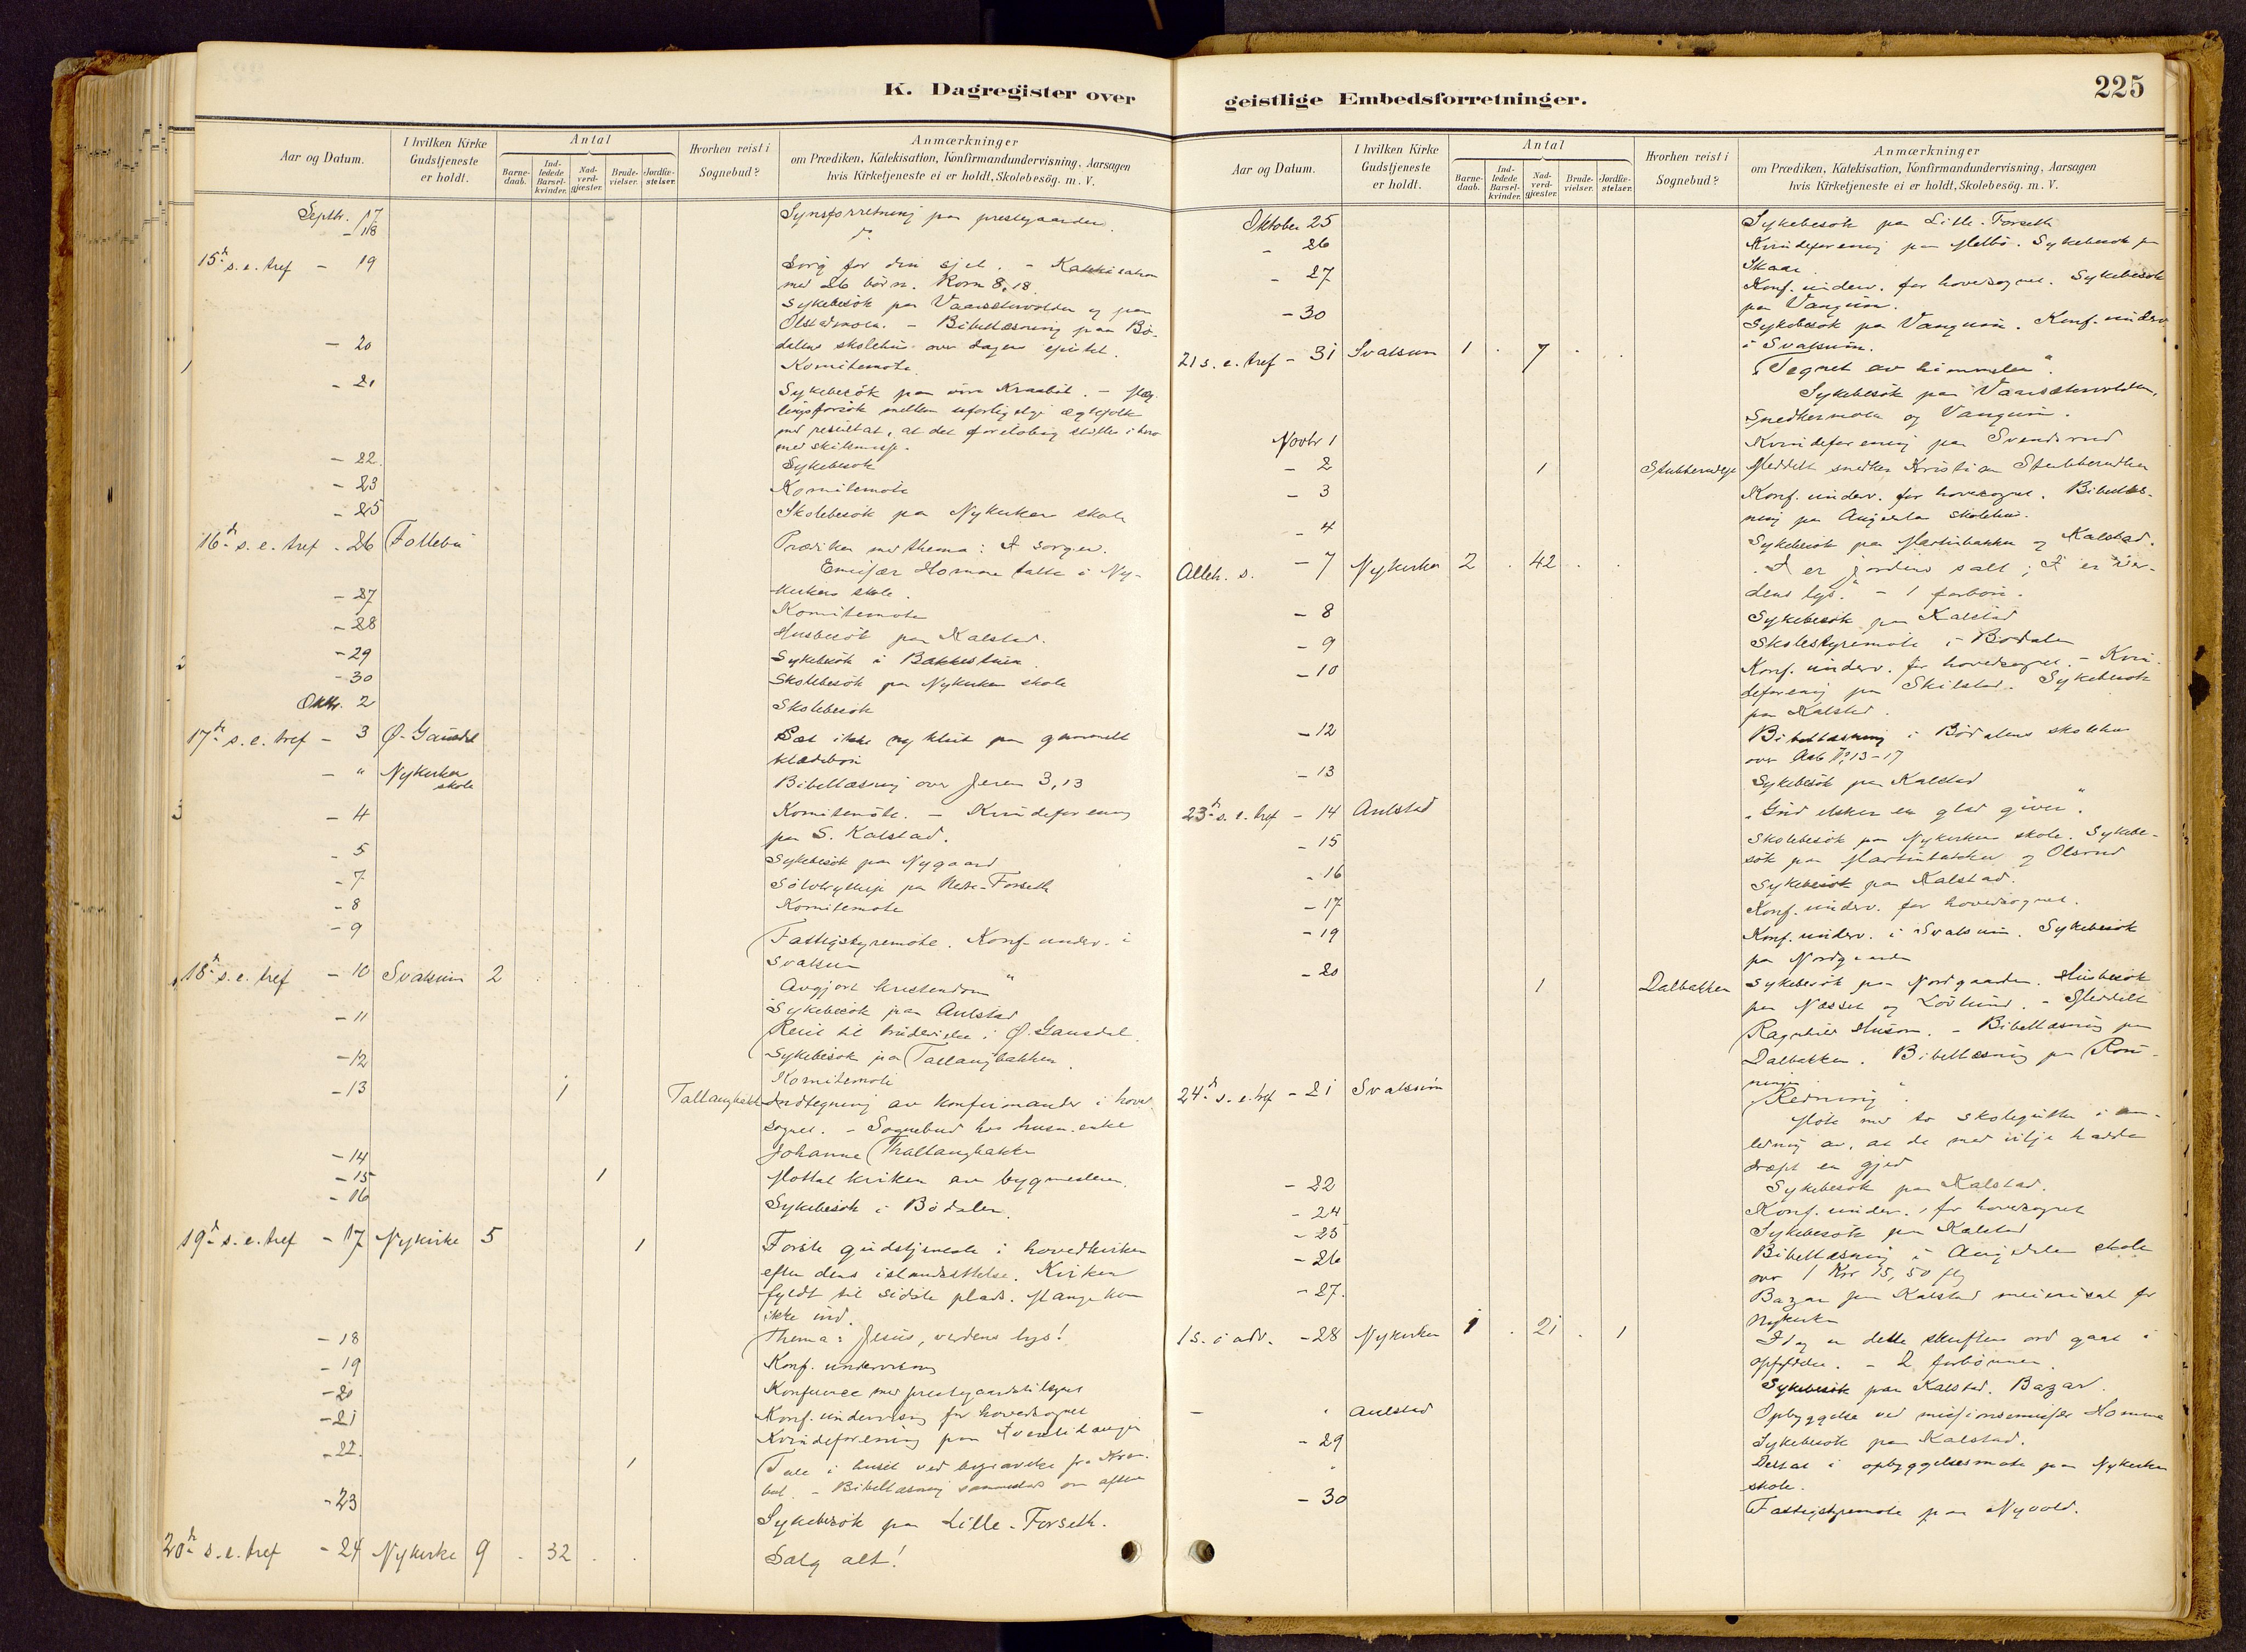 K. Dagregister over
Aar og Datum.
I hvilken Kirke Gudstjeneste er holdt.
Antal
Barne-daab.
Ind-ledede Barsel-kvinder.
Nad-verd-gjæster.
Brude-vielser.
Jordfæ-stelser.
Hvorhen reist i Sognebud?
Anmærkninger
om Prædiken, Katekisation, Konfirmandundervisning, Aarsagen
hvis Kirketjeneste ei er holdt, Skolebesög. m. V.
Septbr. 17 Synsforretning paa prestegaarden.
- 18 do
15de s. e. tref - 19 Sørg for din sjel. - Katekisation
med 26 børn. Rom 8,18.
Sykebesøk paa Vaarsætervolden og paa
Olstadmoen. - Bibellæsning paa Bø-
dalens skolehus over dagens epistel.
- 20 Komitemøte.
- 21 Sykebesøk paa øvre Kraabøl. - Mæg-
lingsforsøk mellem uforligelige egtefolk
med resultat, at det foreløbig stilles i bero
med skilsmisse.
- 22. Sykebesøk
- 23 Komitemøte
- 25 Skolebesøk paa Nykirken skole
16de s. e. tref - 26 Follebu Prædiken med thema: I sorgen.
Emissær Homme talte i Ny-
kirkens skole.
- 27 Komitemøte
- 28 Husbesøk paa Kalstad.
- 29 Sykebesøk i Bakkestuen.
- 30 Skolebesøk paa Nykirken skole
Oktbr. 2 Skolebesøk
17de s. e. tref - 3 Ø. Gausdal Sæt ikke ny klut paa gammelt
klædebon
- " Nykirken skole Bibellæsning over Jerem 3,13
- 4 Komitemøte. - Kvindeforening
paa S. Kalstad.
- 5 Sykebesøk paa Nygaard
- 7 Sølvbryllup paa Nedre-Forseth
- 8 Komitemøte
- 9 Fattigstyremøte. Konf. underv. i
Svatsum
18de s. e. tref - 10 Svatsum 2 Avgjort kristendom"
Sykebesøk paa Aulstad
- 11 Reist til brudevielse i Ø. Gausdal.
- 12 Sykebesøk paa Tallaugbakken.
Komitemøte
- 13 1 Tallaugbakk Indtegning av konfirmanter i hoved-
sognet. - Sognebud hos husm. enke
Johanne Thallaugbakken
- 14
- 15 1 Mottat kirken av bygmesteren.
- 16 Sykebesøk i Bødalen.
19de s. e. tref - 17 Nykirke 5 1 Første gudstjeneste i hovedkirken
efter dens istandsettelse. Kirken
fyldt til sidste plads. Mange kom
ikke ind.
Thema: Jesus, verdens lys!
- 18 Konf. undervisning
- 19 Konference med prestegaardstilsynet
- 20 Konf. undervisning for hovedsognet
- 21 Kvindeforening paa
- 22. 1 Tale i huset ved begravelse fra Kraa-
bøl. - Bibellæsning sammesteds om aften
- 23 Sykebesøk paa Lille-Forseth.
20de s. e. tref - 24 Nykirke 9 . 32 . . Salg alt!
geistlige Embedsforretninger.
225
Aar og Datum.
I hvilken Kirke Gudstjeneste er holdt.
Antal
Barne-daab.
Ind-ledede Barsel-kvinder.
Nad-verd-gjæster.
Brude-vielser.
Jordfæ-stelser.
Hvorhen reist i Sognebud?
Anmærkninger
om Prædiken, Katekisation, Konfirmandundervisning, Aarsagen
hvis Kirketjeneste ei er holdt, Skolebesög. m. V.
Oktober 25 Sykebesøk paa Lille-Forseth
- 26 Kvindeforening paa Melbø. Sykebesøk paa
Skaar
- 27 Konf. underv. for hovedsognet. Sykebesøk
paa Vangum.
- 30 Sykebesøk paa Vangum. Konf. underv
i Svatsum.
21 s. e. tref - 31 Svatsum 1 . 7 . . „Tegnet av himmelen".
Sykebesøk paa Vaarsætervolden,
Snedkermoen og Vangum.
Novbr 1 Kvindeforening paa Svendsrud
- 2 1 Stubberudeje Meddelt snedker Kristian Stubberudeie
- 3 Konf. underv. for hovedsognet. Bibellæs-
ning paa Augedalen skolehus.
- 4 Sykebesøk paa Martinbakken og Kalstad.
Alleh. s. - 7 Nykirken 2 . 42 . . I er jordens salt; I er ver-
dens lys." - 1 forbøn.
- 8 Sykebesøk paa Kalstad
- 9 Skolestyremøte i Bødalen
- 10 Konf. underv. for hovedsognet. - Kvin-
deforening paa Skilstad. Sykebesøk
paa Kalstad.
- 12 Bibellæsning i Bødalens skolehus
over Aab 7, 13-17
- 13 Sykebesøk paa Kalstad
23de s. e. tref - 14 Aulstad „Gud elsker en glad giver".
- 15 Skolebesøk paa Nykirkens skole. Sykebe-
søk paa Martinbakken og Olsrud
- 16 Sykebesøk paa Kalstad.
- 17 Konf. underv. for hovedsognet.
- 19 Konf. underv. i Svatsum. Sykebesøk
paa Nordgaarden
- 20 1 Dalbakken Sykebesøk paa Nordgaarden. Husbesøk
paa Næsset og Løvlund. - Meddelt
Ragnhild Huson. - Bibellæsning paa
Dalbakken. Bibellæsning paa Røn-
ningen.
24de s. e. tref - 21 Svatsum „Redning".
Møte med to skolegutter i an-
ledning av, at de med vilje hadde
dræpt en gjed
- 22 Sykebesøk paa Kalstad.
- 24 Konf. underv. for hovedsognet
- 25 Sykebesøk paa Kalstad
- 26 Bibellæsning i Augedalen skole
over 1 Kor 15, 50 flg
- 27. Bazar paa Kalstad meierisal for
Nykirken
1 s. i adv. - 28 Nykirken 1 . 21 . 1 Idag er dette skriftens ord gaat i
opfyldelse. - 2 forbønner.
Sykebesøk paa Kalstad. Bazar.
- " Aulstad Opbyggelse ved missionsemissær Homme
- 29 Sykebesøk paa Kalstad.
Deltat i opbyggelsesmøte paa Nykirken
skole.
- 30 Fattigstyremøte paa Nyvold.